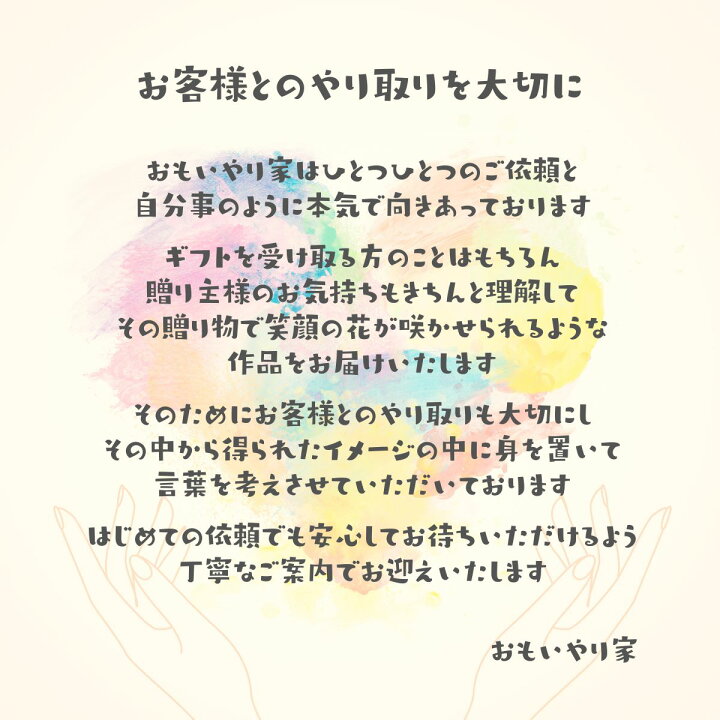 お客様とのやり取りを大切に
おもいやり家はひとつひとつのご依頼と
自分事のように本気で向きあっております
ギフトを受け取る方のことはもちろん
贈り主様のお気持ちもきちんと理解して
その贈り物で笑顔の花が咲かせられるような
作品をお届けいたします
そのためにお客様とのやり取りも大切にし
その中から得られたイメージの中に身を置いて
言葉を考えさせていただいております
はじめての依頼でも安心してお待ちいただけるよう
丁寧なご案内でお迎えいたします
おもいやり家